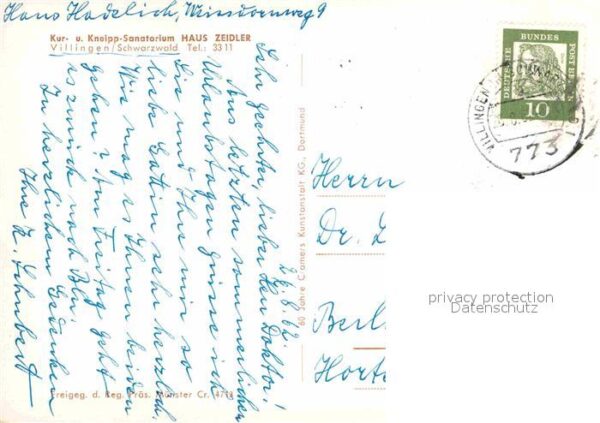 Hans Hadelich, Weissdornweg 9
Kur- u. Kneipp-Sanatorium HAUS ZEIDLER
Villingen/Schwarzwald Tel.: 33 11
26.8.62.
Sehr geehrter, lieber Herr Doktor!
Aus letzten sommerlichen
Urlaubstagen grüsse ich
Sie und Ihre mir so
liebe Gattin sehr herzlich.
Wie mag es Ihnen beiden
gehen? Am Freitag geht
es zurück nach Bln.
In herzlichem Gedenken
Ihre
60 Jahre Cramers Kunstanstalt KG., Dortmund
Freigeg. d. Reg. Präs. Münster Cr.
DEUTSCHE BUNDESPOST
10
VILLINGEN
773
Herrn
Dr.
Berl
privacy protection
Datenschutz